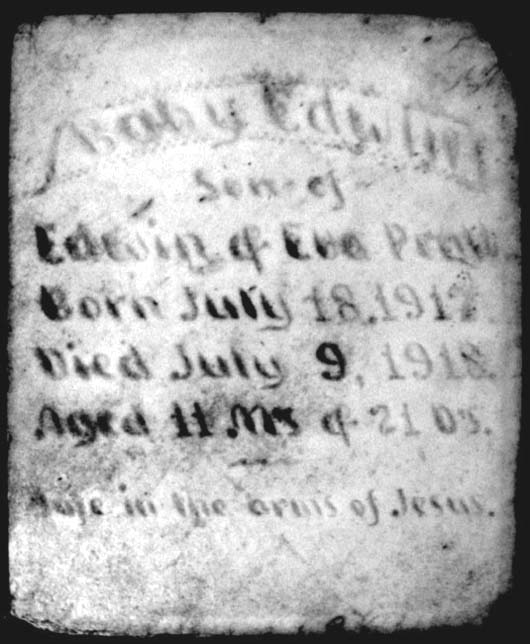 Baby Edwin
Son of
Edwin & Eva
Born July 18, 1917
Died July 9, 1918.
Aged 11 Ms & 21 Ds.
Safe in the arms of Jesus.